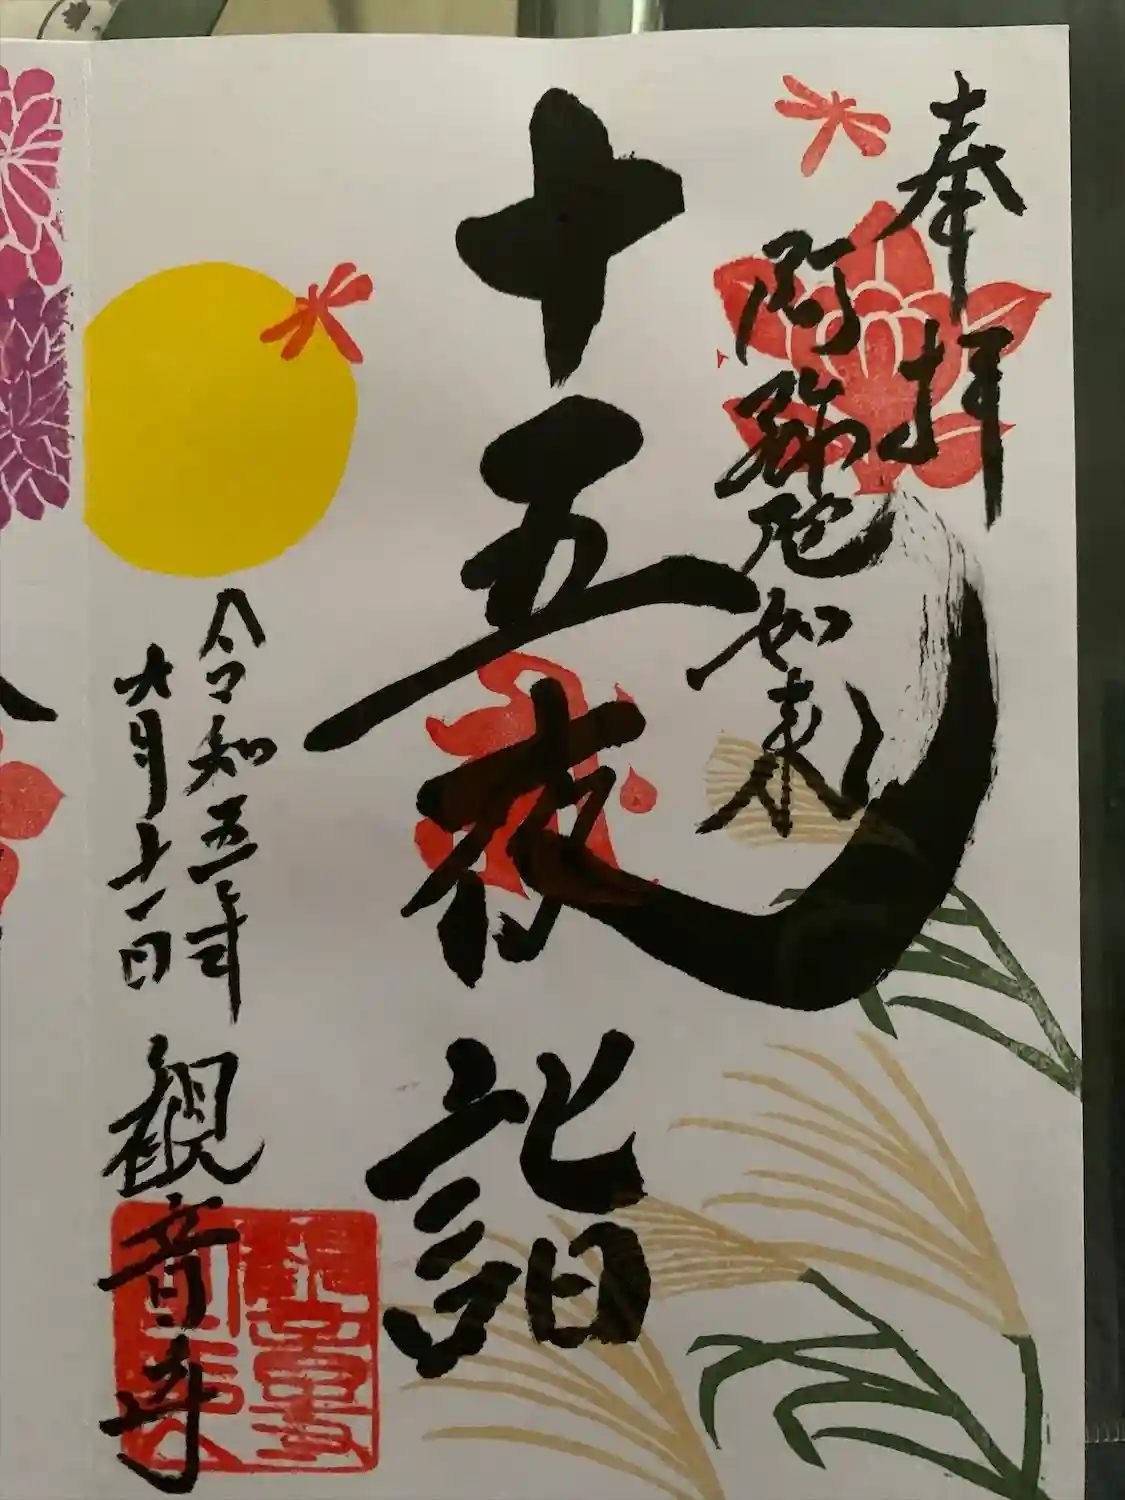 奉拝
阿弥陀如来
十五夜詣
令和五年
九月十一日
観音寺